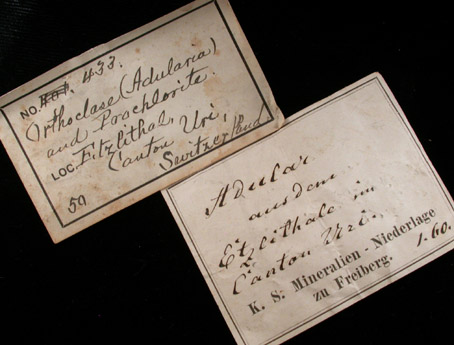 NO. 433.
Orthoclase (Adularia)
and Prochlorite.
LOC. Fitzlithal,
Canton Uri,
Switzerland
59
Adular
aus dem
Etzlithale im
Canton Uri.
K. S. Mineralien-Niederlage
zu Freiberg.
1.60.